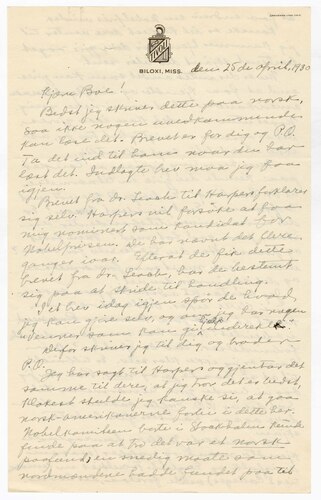 BILOXI, MISS.
den 25de April, 1930
Kjære Boe!
Bedst jeg skriver dette paa norsk,
saa ikke nogen uvedkommende
kan læse det. Brevet er for dig og P.O.
Ta det ind til ham naar du har
læst det. Indlagte brev maa jeg faa
igjen.
Brevet fra dr. Leach til Harpers forklarer
sig selv. Harpers vil forsøke at faa
mig nominert som kandidat for
Nobelprisen. De har nævnt det flere
ganger i vaar. Efterat de fik dette
brevet fra dr. Leach, har de bestemt
sig paa at skride til handling.
I et brev idag igjen spør de hvad
jeg kan gjøre selv, og om jeg har nogen
venner som kan
Derfor skriver jeg til dig og broder
P.O.
Jeg har sagt til Harpers og gjentar det
samme til dere, at jeg tror det er bedst,
klokest skulde jeg kanske si, at gaa
norsk-amerikanerne forbi i dette her.
Nobelkomiteen borte i Stockholm kunde
finde paa at tro det var et norsk
paafund, en snedig maate som
nordmændene hadde fundet paa til